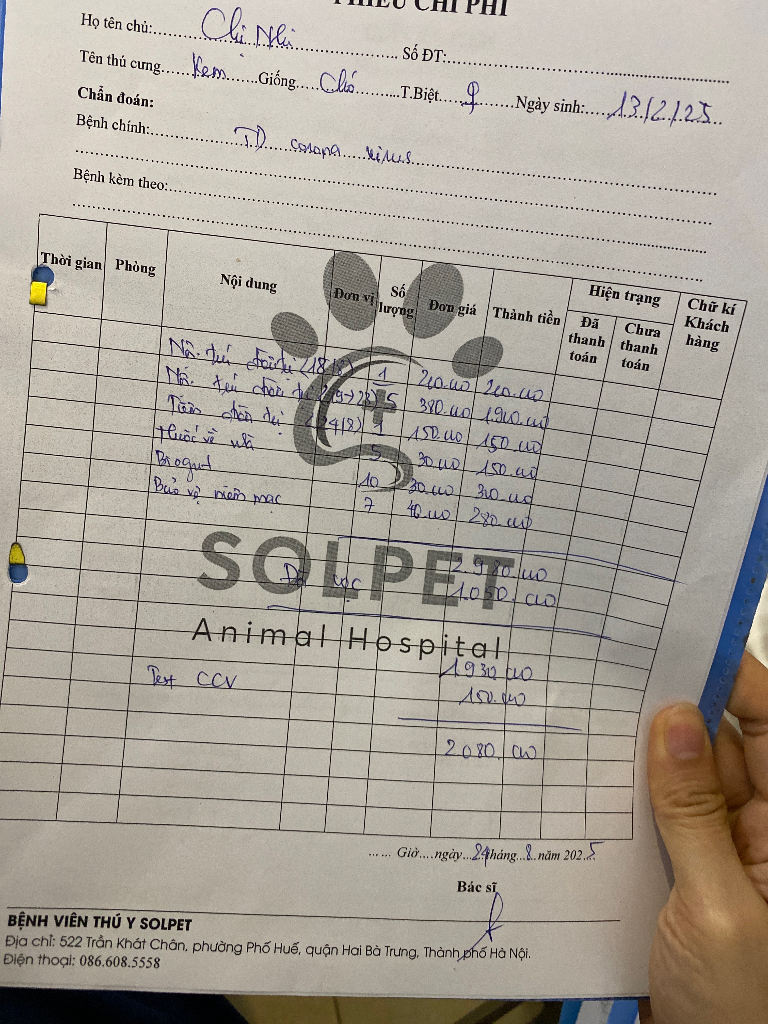 PHIẾU CHI PHÍ
Họ tên chủ: Chị Nhi Số ĐT:
Tên thú cưng Kem Giống Chó T.Biệt ♀ Ngày sinh: 13/2/25
Chẩn đoán:
Bệnh chính: TD corona virus
Bệnh kèm theo:
Thời gian Phòng Nội dung Đơn vị Số lượng Đơn giá Thành tiền Hiện trạng Chữ kí Khách hàng
Đã thanh toán Chưa thanh toán
Nội trú điều trị (18/8) 1 200.000 200.000
Nội trú điều trị (19->23) 5 380.000 1.900.000
Tiêm điều trị (24/8) 1 150.000 150.000
Thuốc về nhà 5 30.000 150.000
Biogut 10 30.000 300.000
Bảo vệ niêm mạc 7 40.000 280.000
2.980.000
Đã cọc 1.050.000
SOLPET
Animal Hospital
1930.000
Test CCV 150.000
2.080.000
Giờ....ngày...24tháng...8..năm 2025
Bác sĩ
BỆNH VIÊN THÚ Y SOLPET
Địa chỉ: 522 Trần Khát Chân, phường Phố Huế, quận Hai Bà Trưng, Thành phố Hà Nội.
Điện thoại: 086.608.5558